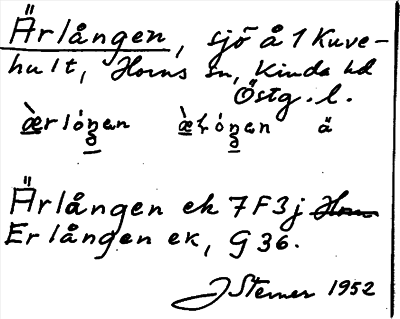 Ärlången, sjö å 1 Kuve-
hult, Horns sn, Kinda hd
Östg. l.
æ̀rlóŋən æ̀ɬóŋən ä
Ärlången ek 7F3j
Erlången ek, G36.
J Sterner 1952